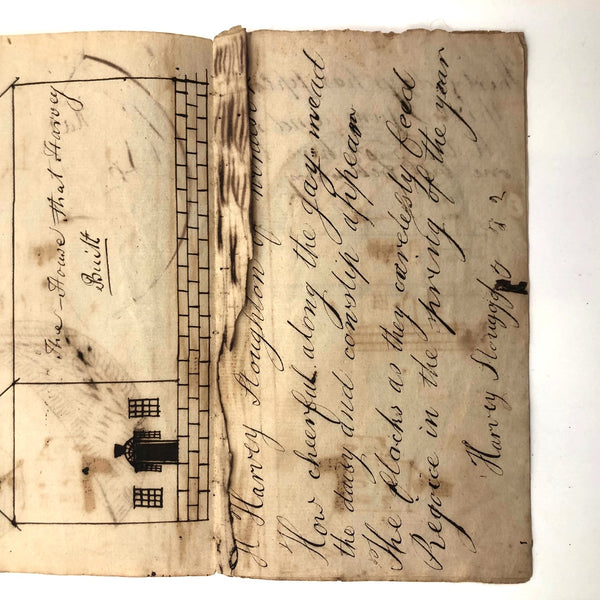 The House that Harvey
Built
H Harvey Stoughton of
How cheerful along the gay mead
the daisy and conslip appear
The flocks as they carelessly feed
Regoice in the spring of the year
Harvey